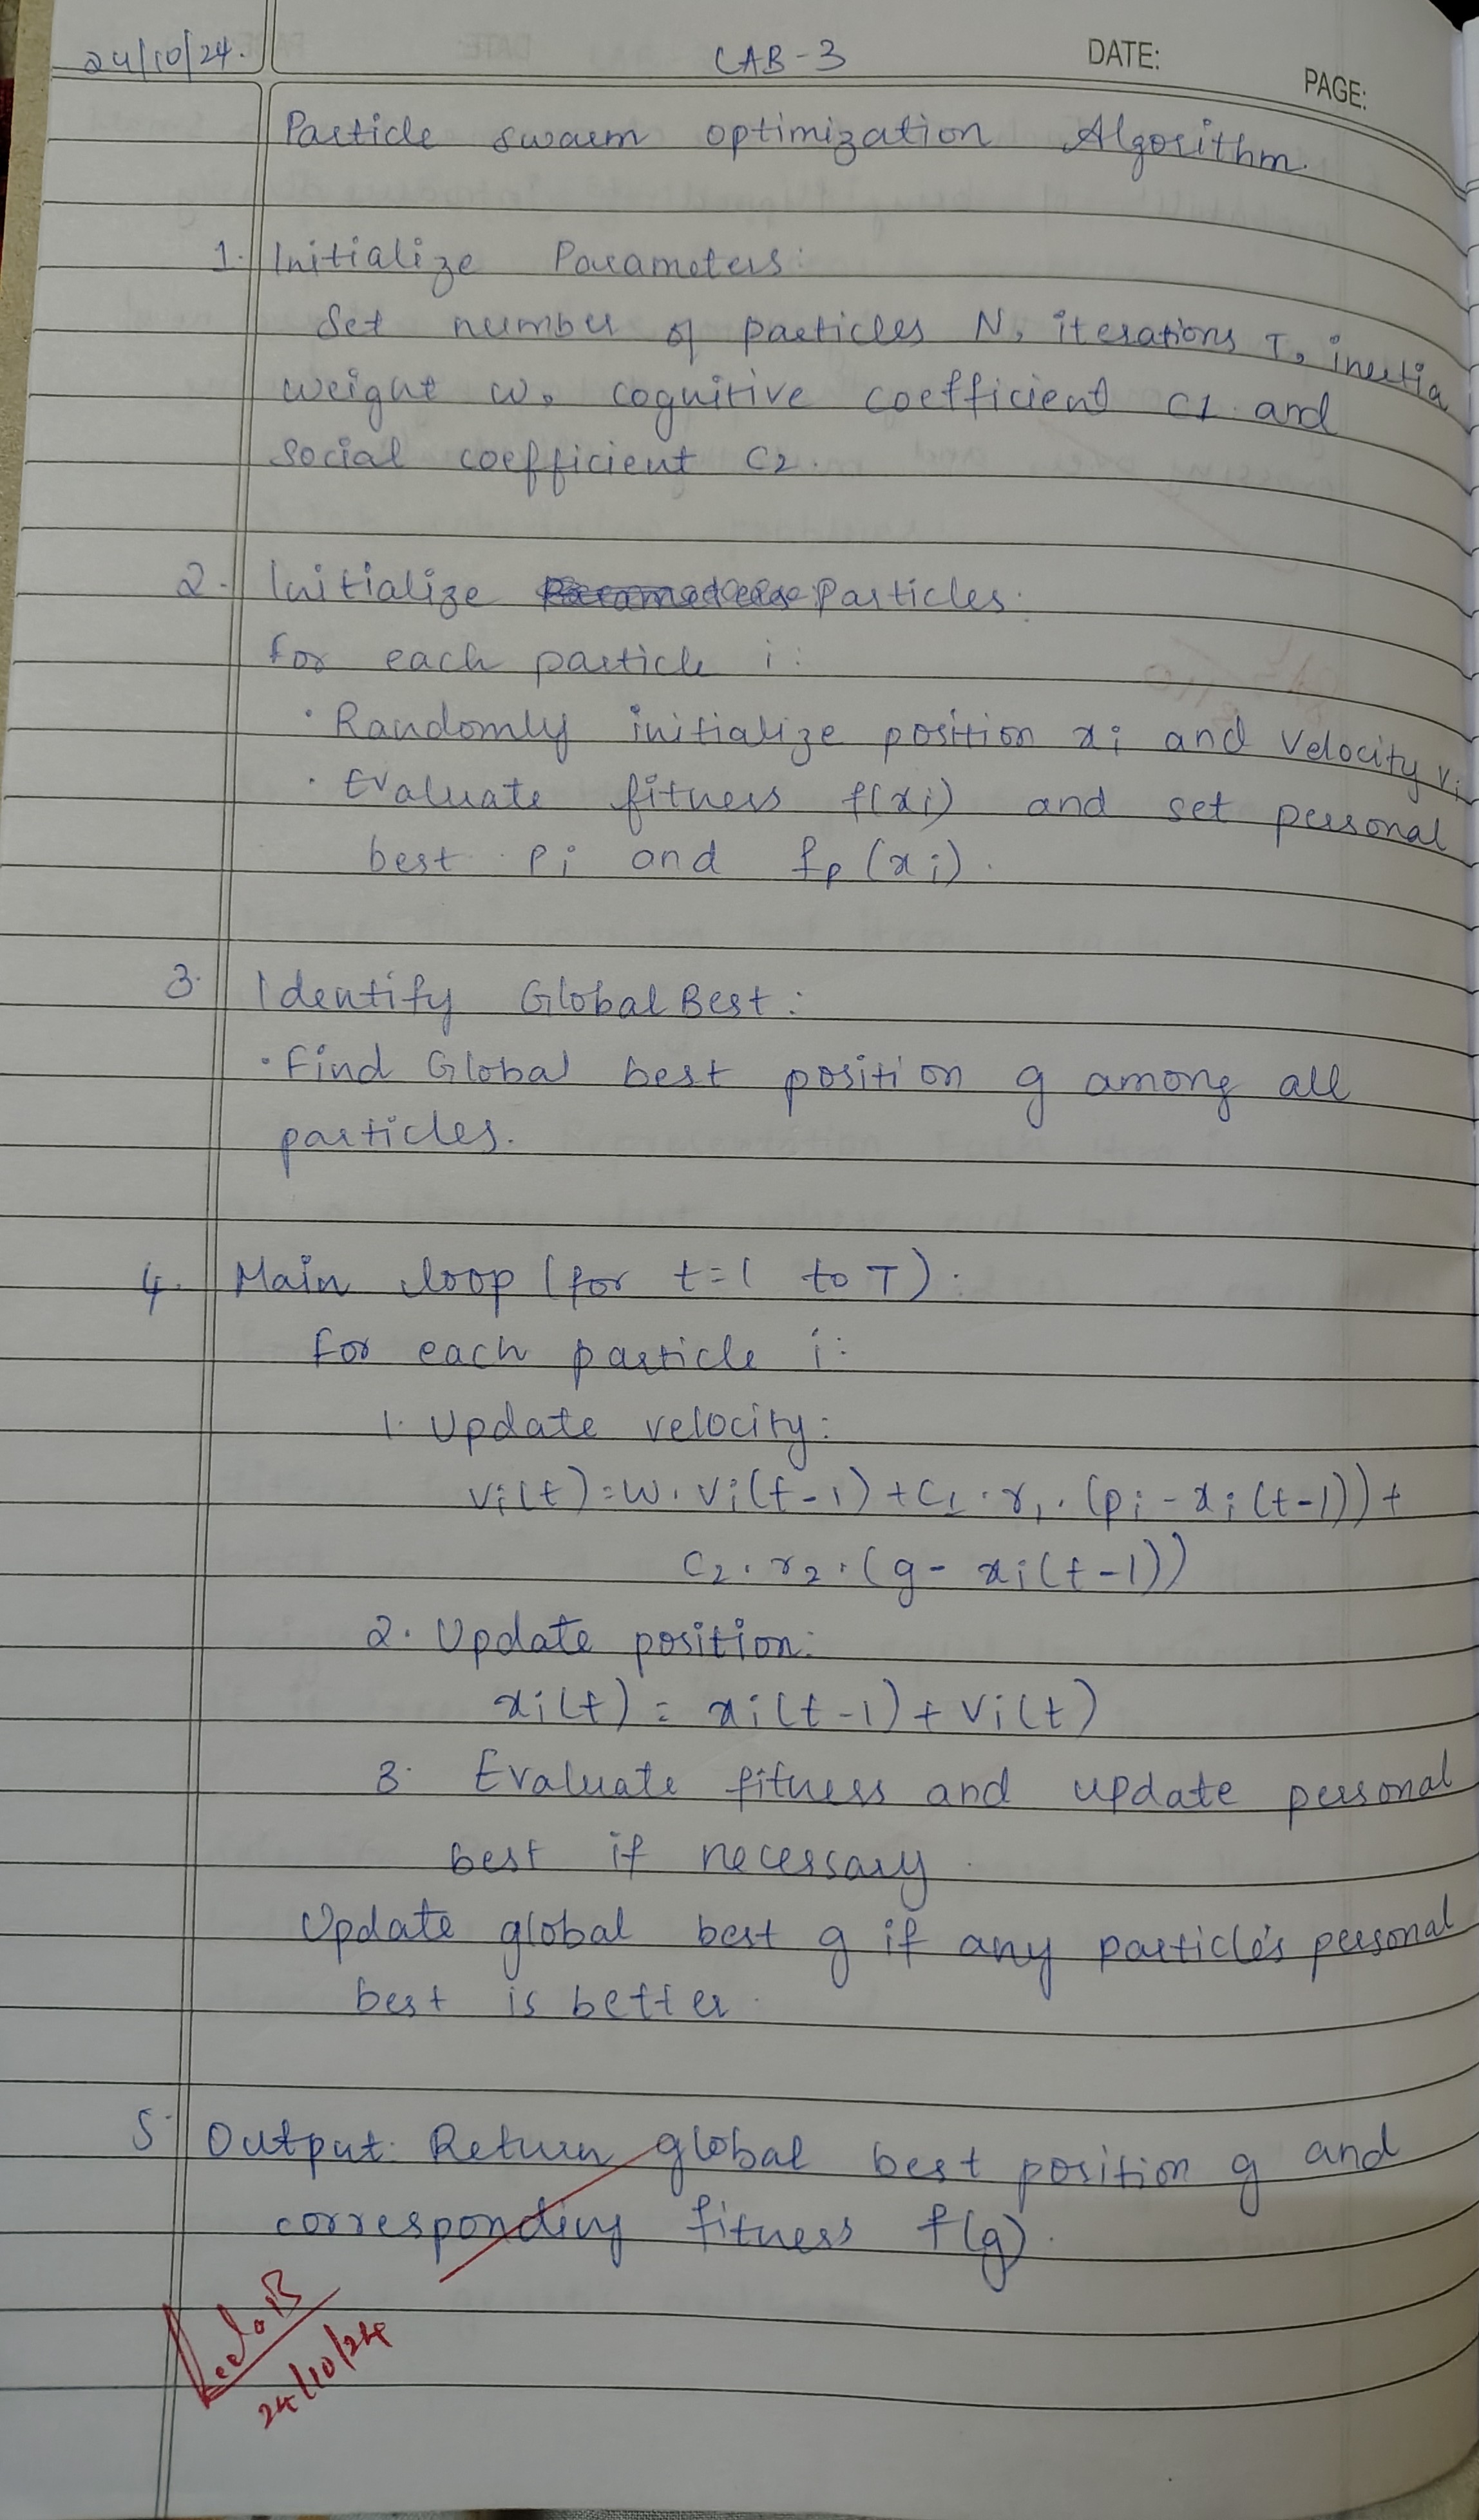 24/10/24. LAB-3 DATE:
PAGE:
Particle swarm optimization Algorithm.
1. Initialize Parameters:
Set number of particles N, iterations T, inertia
weight w, cognitive coefficient C1 and
social coefficient C2.
2. Initialize Particles:
for each particle i:
· Randomly initialize position xi and velocity vi
· Evaluate fitness f(xi) and set personal
best Pi and fp(xi).
3. Identify Global Best:
· Find Global best position g among all
particles.
4. Main loop (for t=1 to T):
for each particle i:
1. Update velocity:
vi(t)=w.vi(t-1)+c1.r1.(pi-xi(t-1))+
c2.r2.(g-xi(t-1))
2. Update position:
xi(t) = xi(t-1)+vi(t)
3. Evaluate fitness and update personal
best if necessary.
Update global best g if any particle's personal
best is better.
5. Output: Return global best position g and
corresponding fitness f(g).
24/10/24